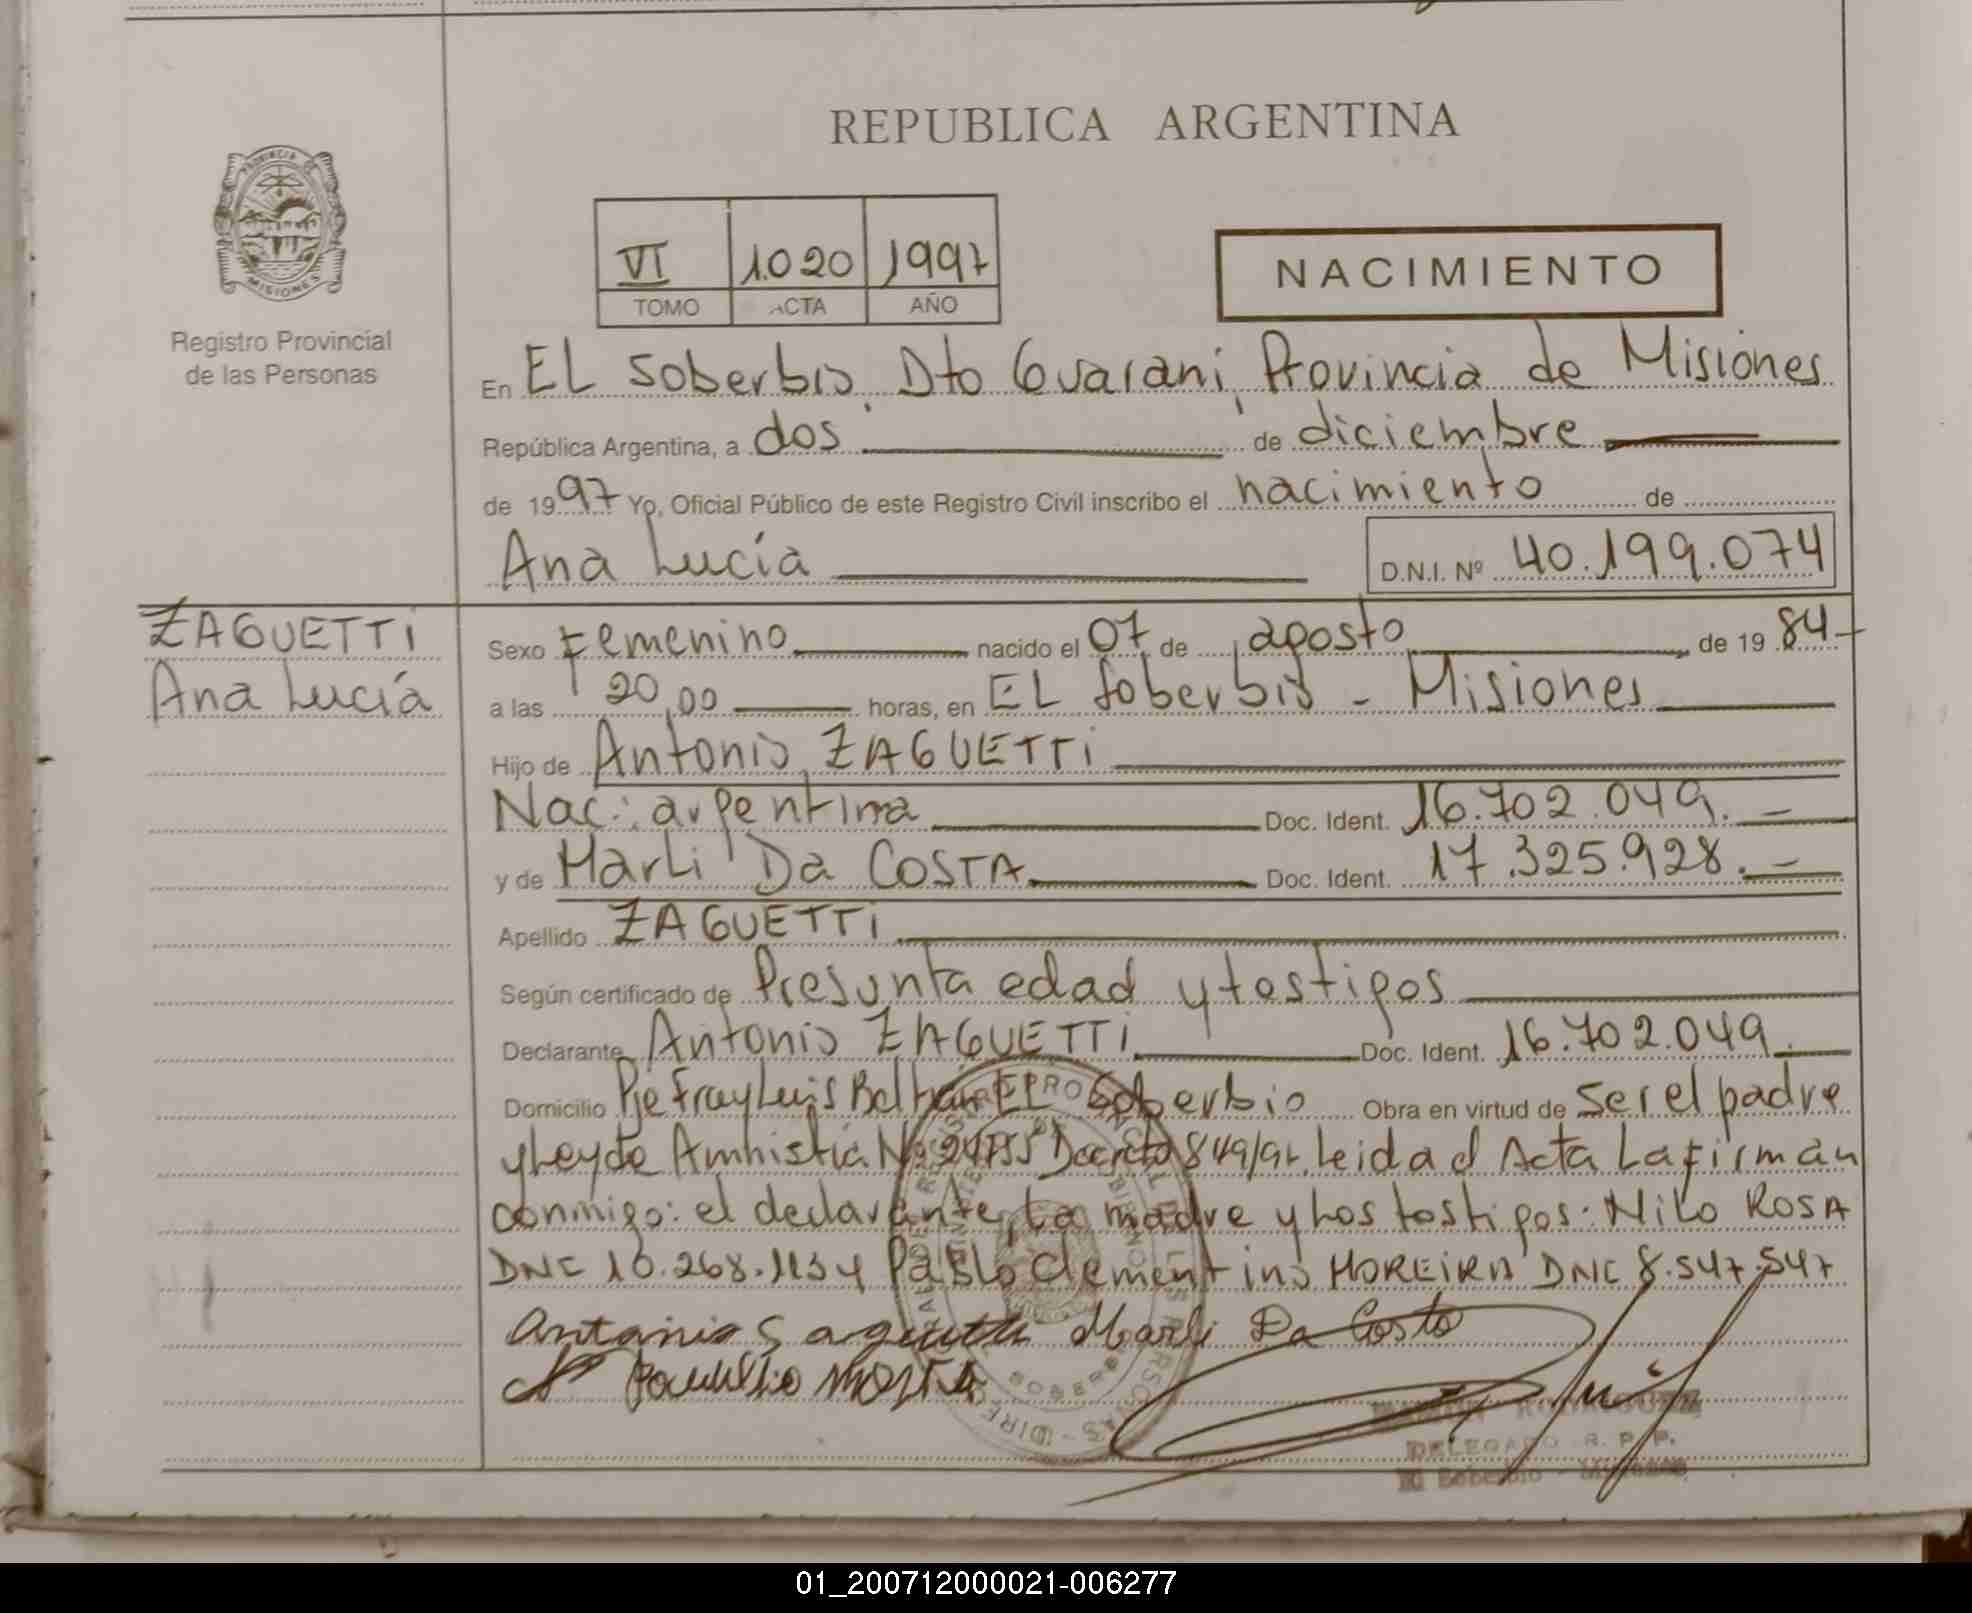 REPUBLICA ARGENTINA
PROVINCIA DE
MISIONES
Registro Provincial
de las Personas
VI 1.020 1997
TOMO ACTA AÑO
NACIMIENTO
En EL Soberbio, Dto Guaraní, Provincia de Misiones
República Argentina, a dos de diciembre
de 1997 Yo, Oficial Público de este Registro Civil inscribo el nacimiento de
Ana Lucía D.N.I. Nº 40.199.074
ZAGUETTi
Ana Lucía
Sexo Femenino nacido el 07 de agosto de 1984
a las 20,00 horas, en EL Soberbio - Misiones
Hijo de Antonio ZAGUETTi
Nac: argentina Doc. Ident. 16.702.049.
y de Marli Da COSTA Doc. Ident. 17.325.928.
Apellido ZAGUETTi
Según certificado de Presunta edad y testigos
Declarante Antonio ZAGUETTi Doc. Ident. 16.702.049
Domicilio Pje Fray Luis Beltrán EL Soberbio Obra en virtud de ser el padre
y Ley de Amnistía Nº 24755 Decreto 849/96 Leida el Acta La firman
conmigo: el declarante, La madre y Los testigos: Nilo ROSA
10.268. Pablo Clementino MOREIRA 8.547.547
Marli Da Costa
DELEGADO R. P. P.
El Soberbio - Misiones
01_200712000021-006277